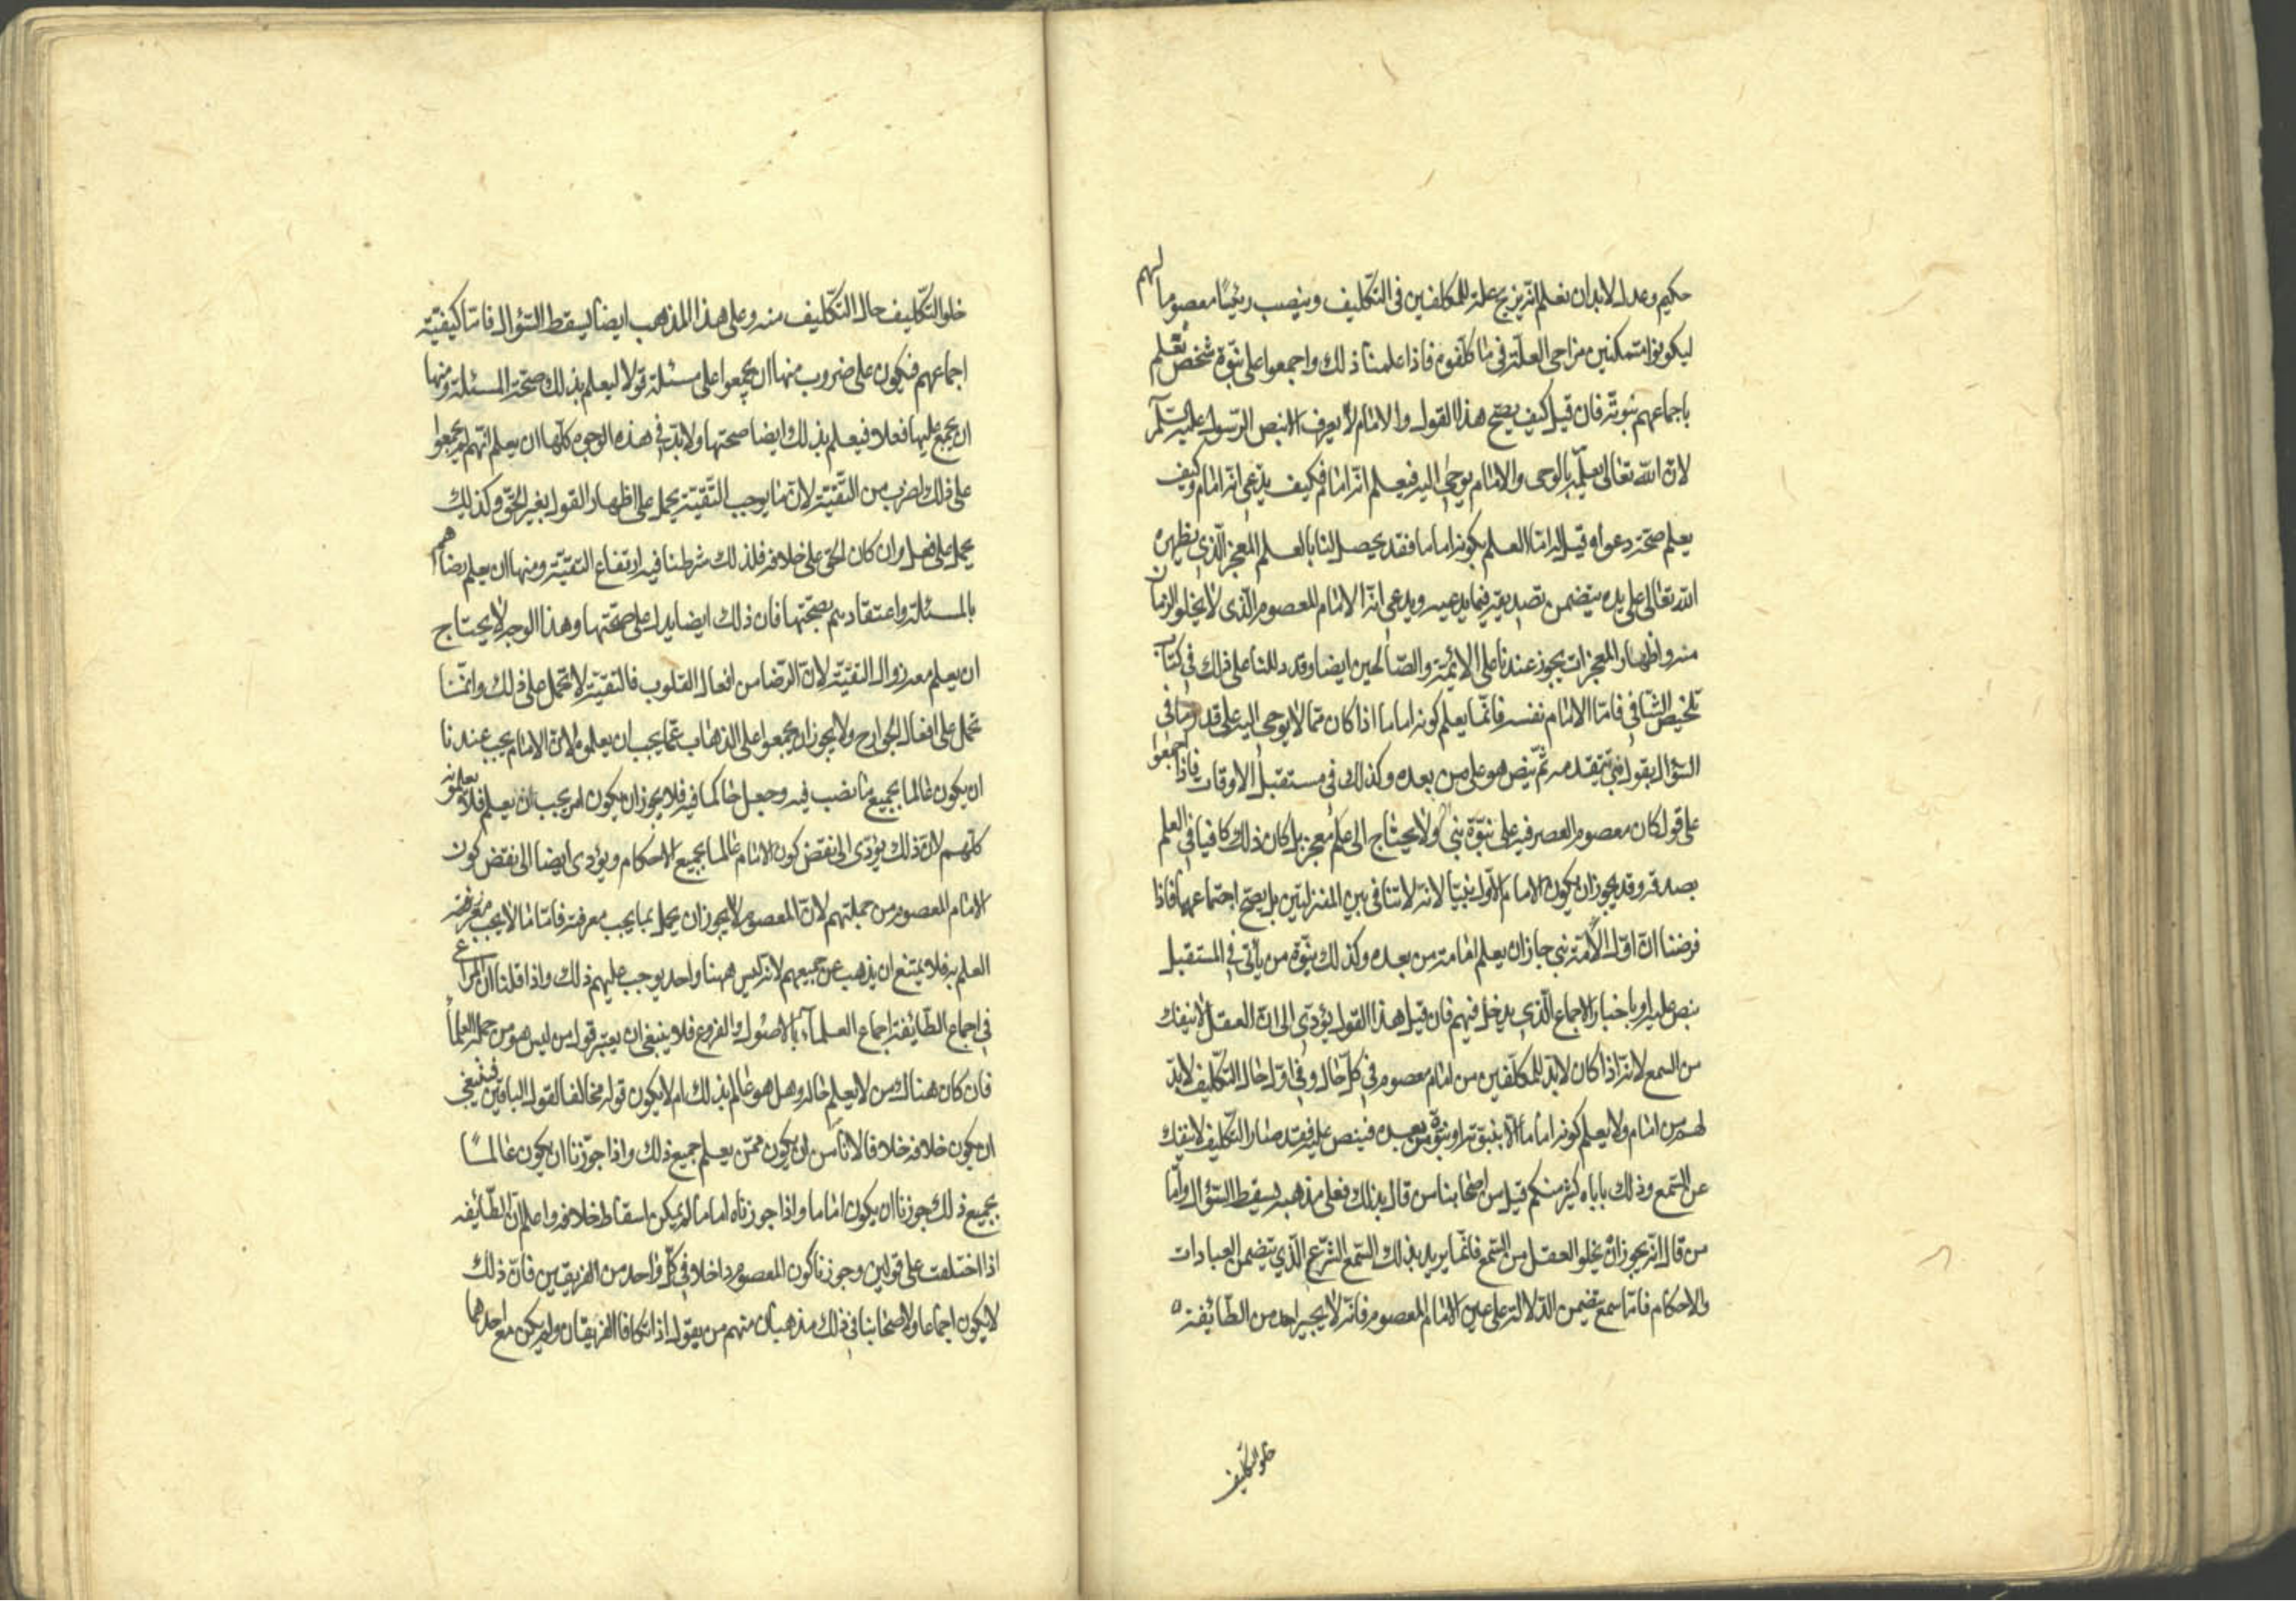 حكيم وعدل لابد ان نعلم انه يزيح علة المكلفين فى التكليف وينصب رئيسا معصوما لهم
ليكونوا متمكنين مزاحى العلة فى ما كلفوه فاذا علمنا ذلك واجمعوا على نبوة شخص نعلم
باجماعهم نبوته فان قيل كيف يصح هذا القول والامام لا يعرف الا بنص الرسول عليه السلم
لان الله تعالى يعلمه بالوحى والامام يوحى اليه فيعلم انه امام فكيف يدعى انه امام وكيف
يعلم صحة دعواه قيل له اما العلم بكونه اماما فقد يحصل لنا بالعلم المعجز الذى يظهره
الله تعالى على يده يتضمن تصديقه فيما يدعيه ويدعى انه الامام المعصوم الذى لا يخلو الزمان
منه واظهار المعجزات يجوز عندنا على الائمة والصالحين ايضا وقد دللنا على ذلك فى كتاب
تلخيص الشافى فاما الامام نفسه فانما يعلم كونه اماما اذا كان مما لا يوحى اليه على قدر ما فى
السؤال بقول نبى يتقدمه ثم ينص هو على من بعده وكذلك فى مستقبل الاوقات فاذا اجمعوا
على قول كان معصوم العصر فيه على نبوة نبى ولا يحتاج الى علم معجز بل كان ذلك كافيا فى العلم
بصدقه وقد يجوز ان يكون الامام الاول نبيا لانه لا تنافى بين المنزلتين بل يصح اجتماعهما فاذا
فرضنا ان اول الائمة نبى جاز ان يعلم امامة من بعده وكذلك نبوة من يأتى فى المستقبل
بنص عليه او باخبار الاجماع الذى يدخل فيهم فان قيل هذا القول يؤدى الى ان العقل لا ينفك
من السمع لانه اذا كان لابد للمكلفين من امام معصوم فى كل حال وفى اول حال التكليف لابد
لهم من امام ولا يعلم كونه اماما الا بنبوته او نبوة من بعده فينص عليه فقد صار التكليف لا ينفك
عن السمع وذلك ياباه كثير منكم قيل من اصحابنا من قال بذلك فعلى مذهبه يسقط السؤال واما
من قال انه يجوز ان يخلو العقل من السمع فانما يريد بذلك السمع الشرع الذى يتضمن العبادات
والاحكام فاما سمع يتضمن الدلالة على عين الامام المعصوم فانه لا يجيز احد من الطائفة
خلو التكليف
خلو التكليف حال التكليف منه وعلى هذا المذهب ايضا يسقط السؤال فاما كيفية
اجماعهم فيكون على ضروب منها ان يجمعوا على مسئلة قولا ليعلم بذلك صحة المسئلة ومنها
ان يجمع عليها فعلا فيعلم بذلك وايضا صحتها ولابد فى هذه الوجوه كلها ان يعلم انهم لم يجمعوا
على ذلك لضرب من التقية لان ما يوجب التقية يحمل على اظهار القول بغير الحق وكذلك
يحمل على فعل وان كان الحق على خلافه فلذلك شرطنا فيه ارتفاع التقية ومنها ان يعلم رضاهم
بالمسئلة واعتقادهم بصحتها فان ذلك ايضا يدل على صحتها وهذا الوجه لا يحتاج
ان يعلم معه زوال التقية لان الرضا من افعال القلوب فالتقية لا تحمل على ذلك وانما
تحمل على افعال الجوارح ولا يجوز ان يجمعوا على الذهاب عما يجب ان يعلموه لان الامام يجب عندنا
ان يكون عالما بجميع ما نصب فيه وجعل حاكما فيه فلا يجوز ان يكون امر يجب ان يعلم فلا يعلمونه
كلهم لان ذلك يؤدى الى نقض كون الامام عالما بجميع الاحكام ويؤدى ايضا الى نقض كون
الامام المعصوم من جملتهم لان المعصوم لا يجوز ان يخل بما يجب معرفته فاما ما لا يجب معرفته
العلم به فلا يمتنع ان يذهب عن جميعهم لانه ليس ههنا واحد يوجب عليهم ذلك واذا قلنا ان المراعى
فى اجماع الطائفة اجماع العلماء بالاصول والفروع فلا ينبغى ان يعتبر قول من ليس هو من جملة العلماء
فان كان هناك من لا يعلم حاله وهل هو عالم بذلك ام لا يكون قوله مخالفا لقول الباقين فينبغى
ان يكون خلافه خلافا لانا من ان يكون ممن يعلم جميع ذلك واذا جوزنا ان يكون عالما
بجميع ذلك جوزنا ان يكون اماما واذا جوزناه اماما لم يمكن اسقاط خلافه واعلم ان الطائفة
اذا اختلفت على قولين وجوزنا كون المعصوم داخلا فى كل واحد من الفريقين فان ذلك
لا يكون اجماعا ولاصحابنا فى ذلك مذهبان منهم من يقول اذا تكافا الفريقان ولم يكن مع احدهما